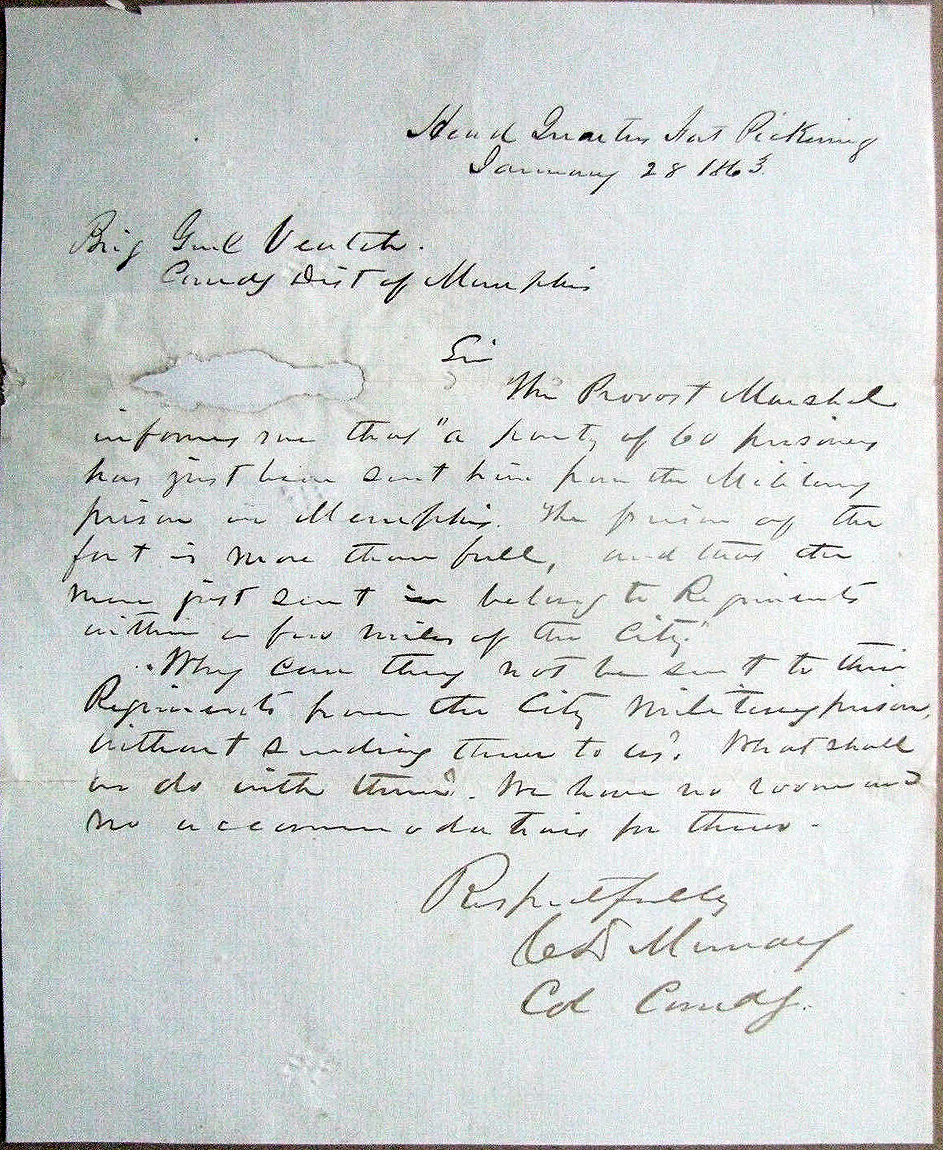 Head Quarters Fort Pickering
January 28 1863
Brig Genl Veatch.
Comdg Dist of Memphis
Sir
The Provost Marshal
informs me that "a party of 60 prisoners
has just been sent him from the Military
prison in Memphis. The prison of the
fort is more than full, and that the
men just sent in belong to Regiments
within a few miles of the City."
Why can they not be sent to their
Regiments from the City Military prison,
without sending them to us? What shall
we do with them? We have no room and
no accommodations for them.
Respectfully
Murray
Col Comdg.